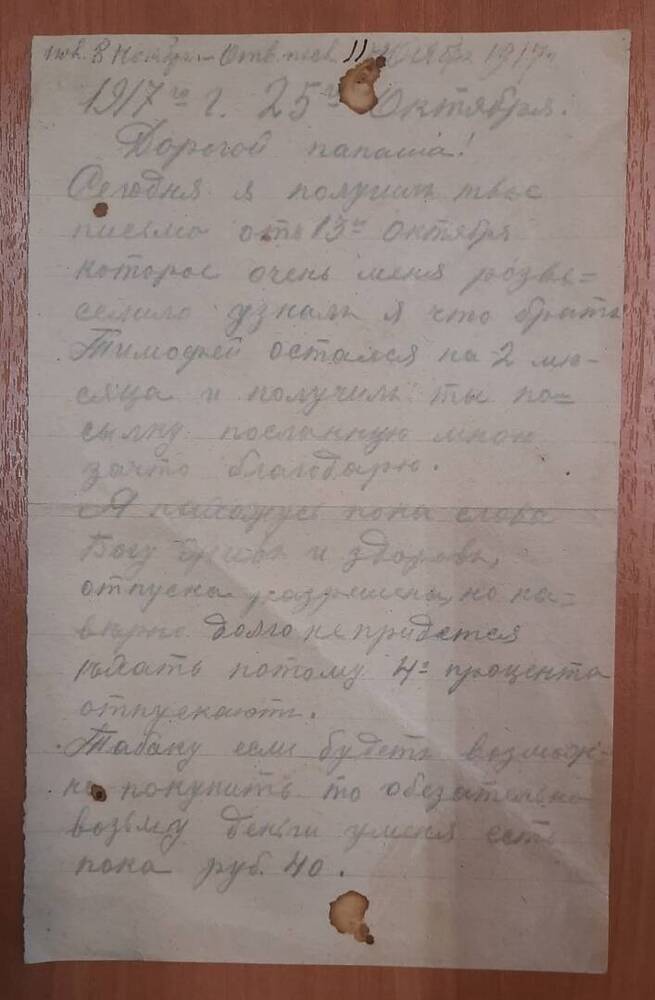 пол. 8 Ноября – Отв. посл. 11 Ноября 1917 г.
1917го г. 25го Октября.
Дорогой папаша!
Сегодня я получилъ твое
письмо отъ 13го Октября
которое очень меня розве=
селило узналъ я что братъ
Тимофей остался на 2 мѣ-
сяца и получилъ ты по=
сылку посланную мною
зачто благодарю.
Я нахожусь пока слова
Богу живъ и здоровъ,
отпуска разрешены, но на=
вѣрно долго не придется
ѣхать потому 4% процента
отпускаютъ.
Табаку если будетъ возмож-
но покупить то обезательно
возьму деньги уменя есть
пока руб. 40.